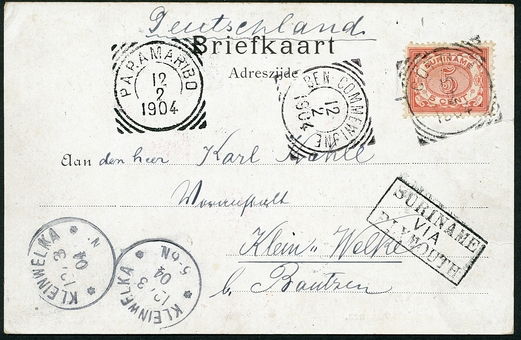 Deutschland
Briefkaart
Adreszijde
PARAMARIBO
12
2
1904
BEN. COMMEWIJNE
12
2
1904
SURINAME
5
CENT
Aan den heer Karl
Klein-Welka
b. Bautzen
SURINAME
VIA
PLYMOUTH
KLEINWELKA
12.3
04
N.
KLEINWELKA
12.3
04
5-6N.